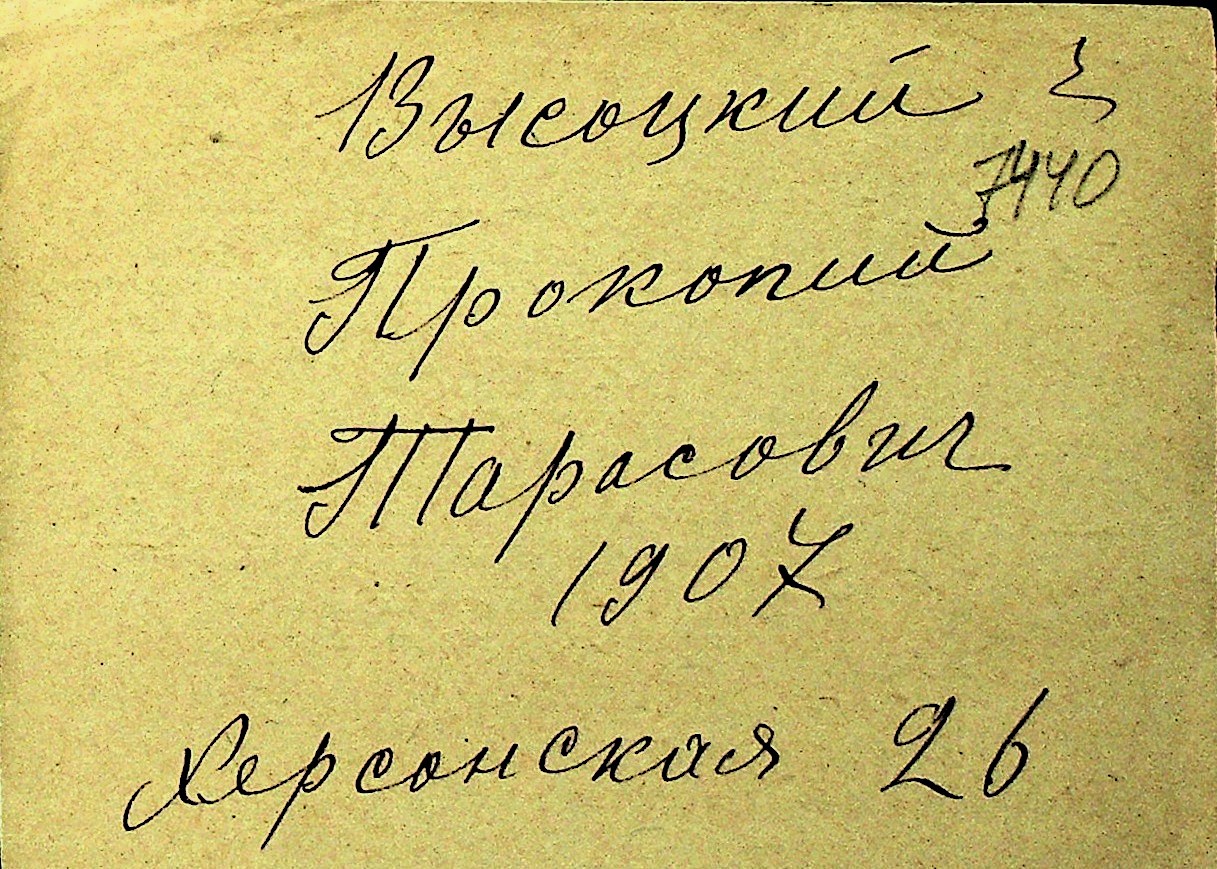 Высоцкий
7440
Прокопий
Тарасович
1907
Херсонская 26